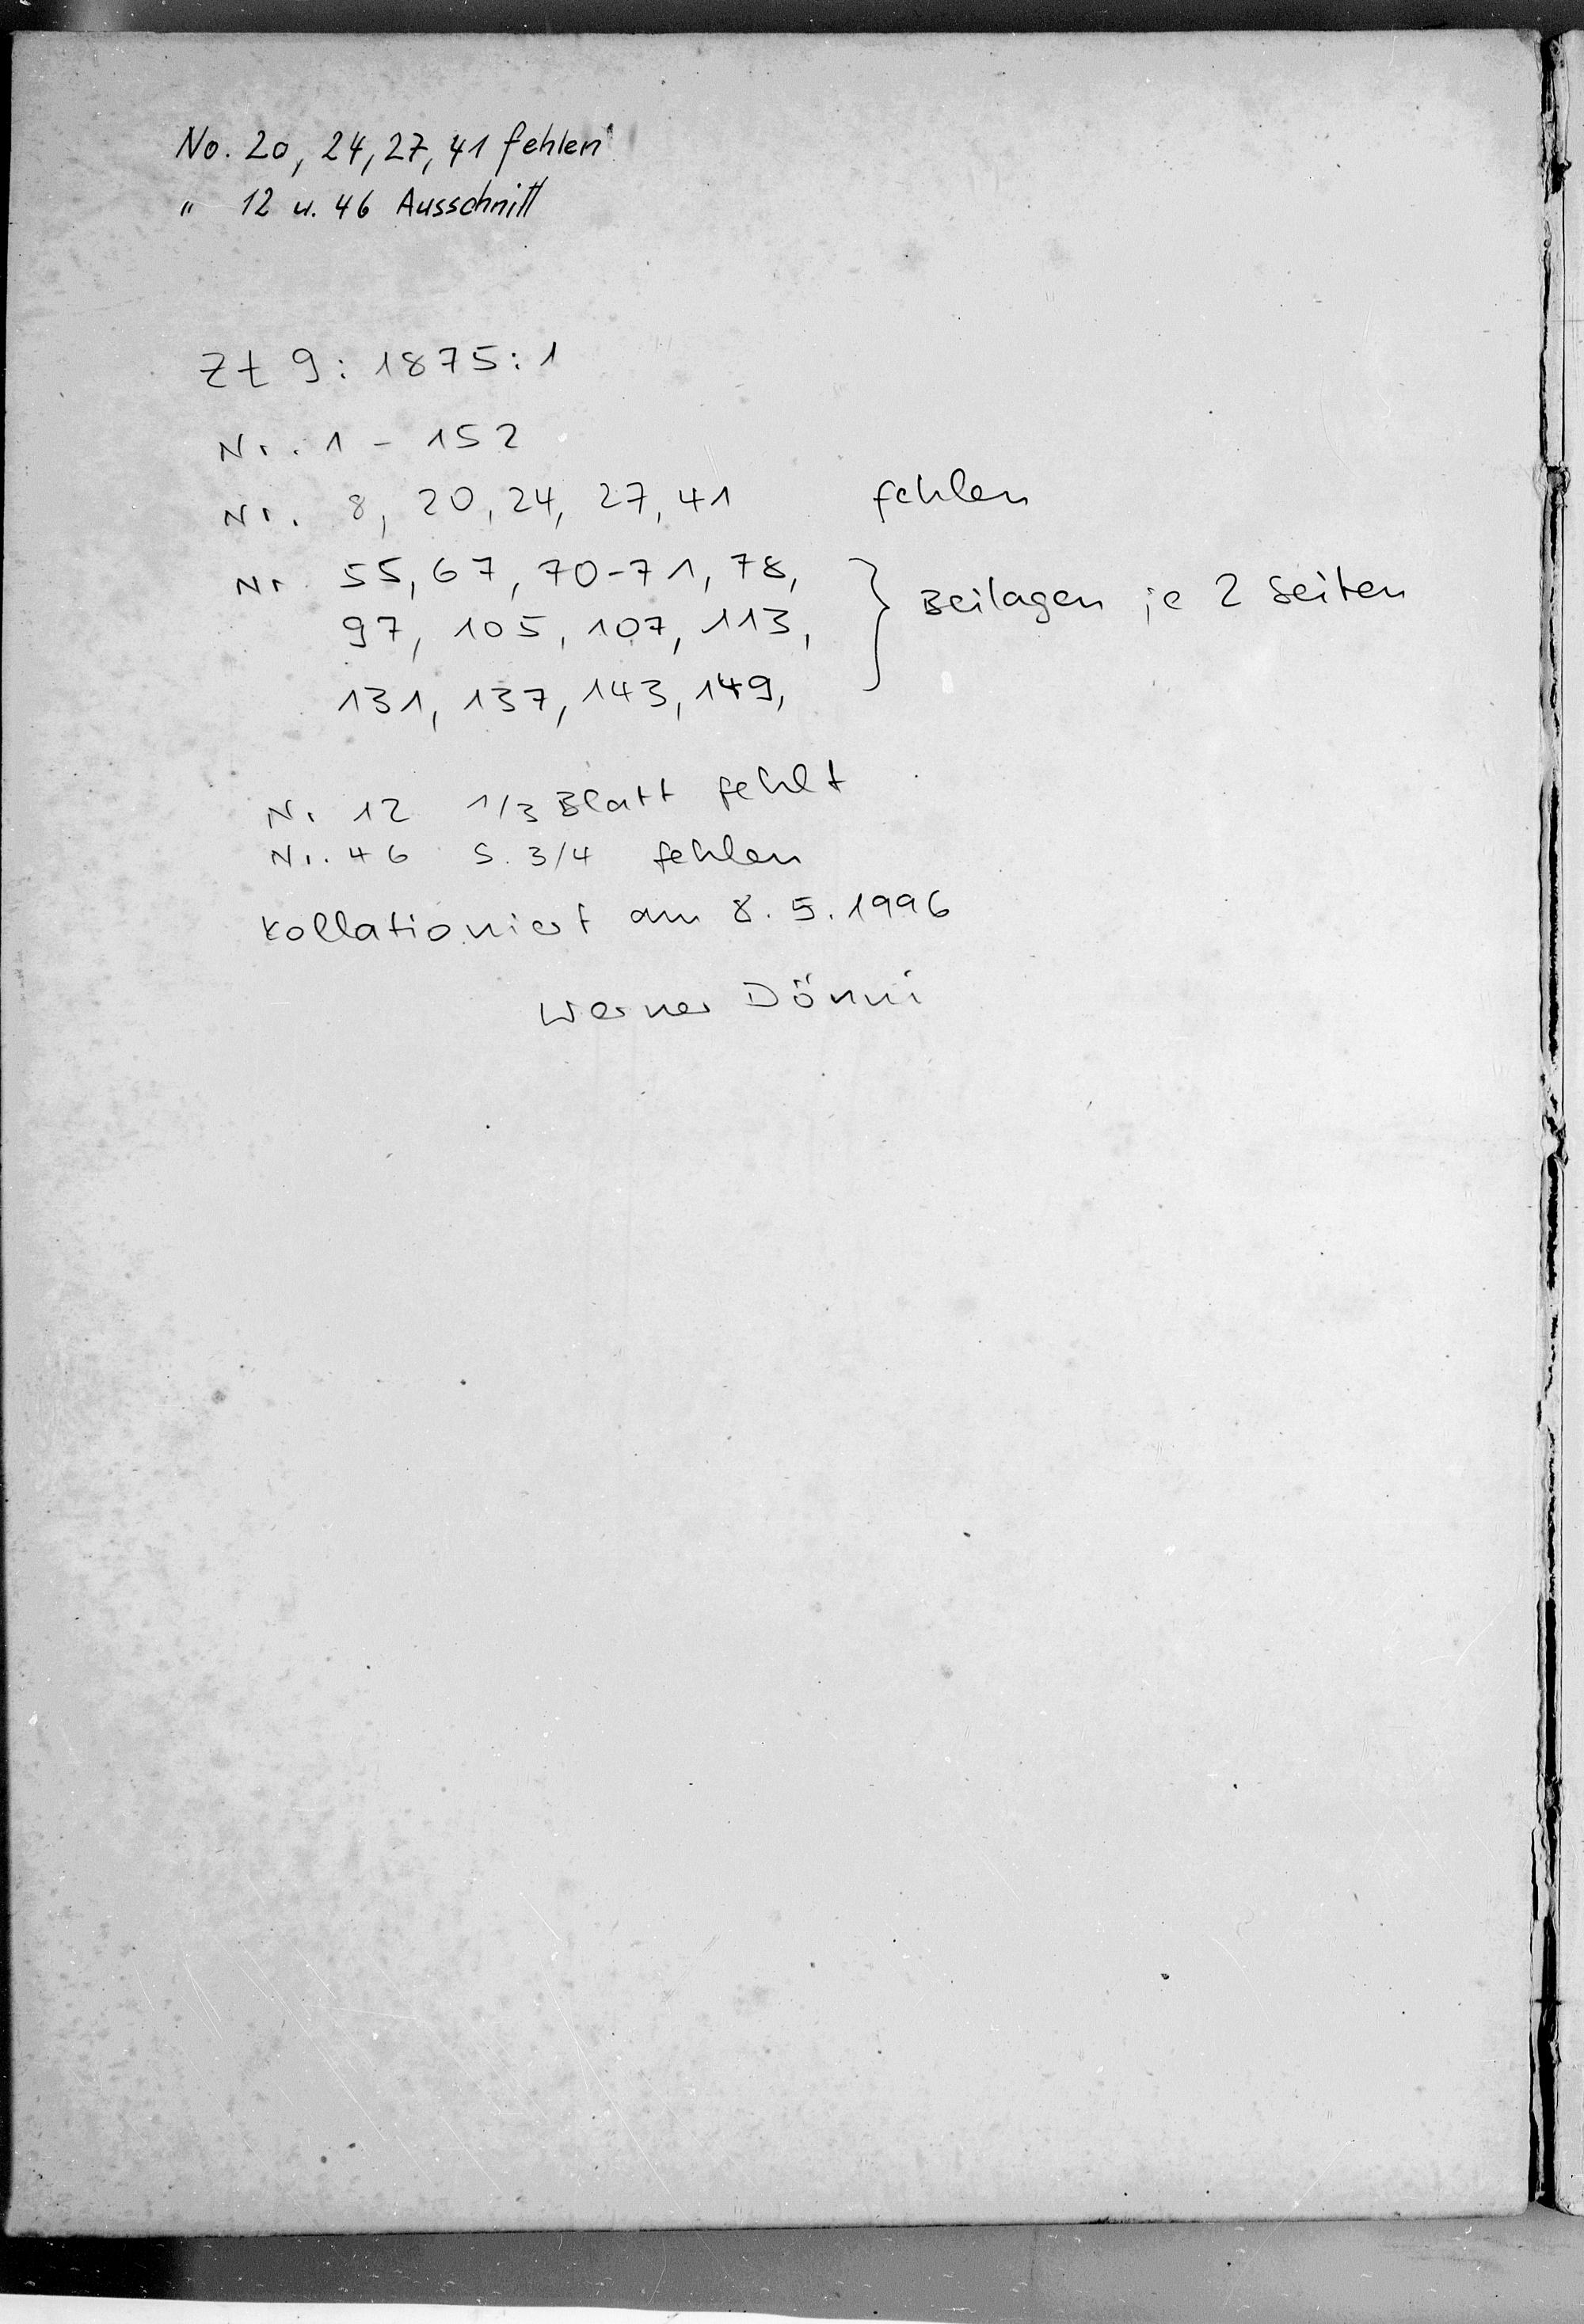 No. 20, 24, 27, 41 fehlen
" 12 u. 46 Ausschnitt
Zt 9: 1875: 1
Nr. 1 - 152
Nr. 8, 20, 24, 27, 41 fehlen
Nr. 55, 67, 70-71, 78,
97, 105, 107, 113, } Beilagen je 2 Seiten
131, 137, 143, 149,
Nr 12 1/3 Blatt fehlt
Nr. 46 S. 3/4 fehlen
Kollationiert am 8. 5. 1996
Werner Dönni